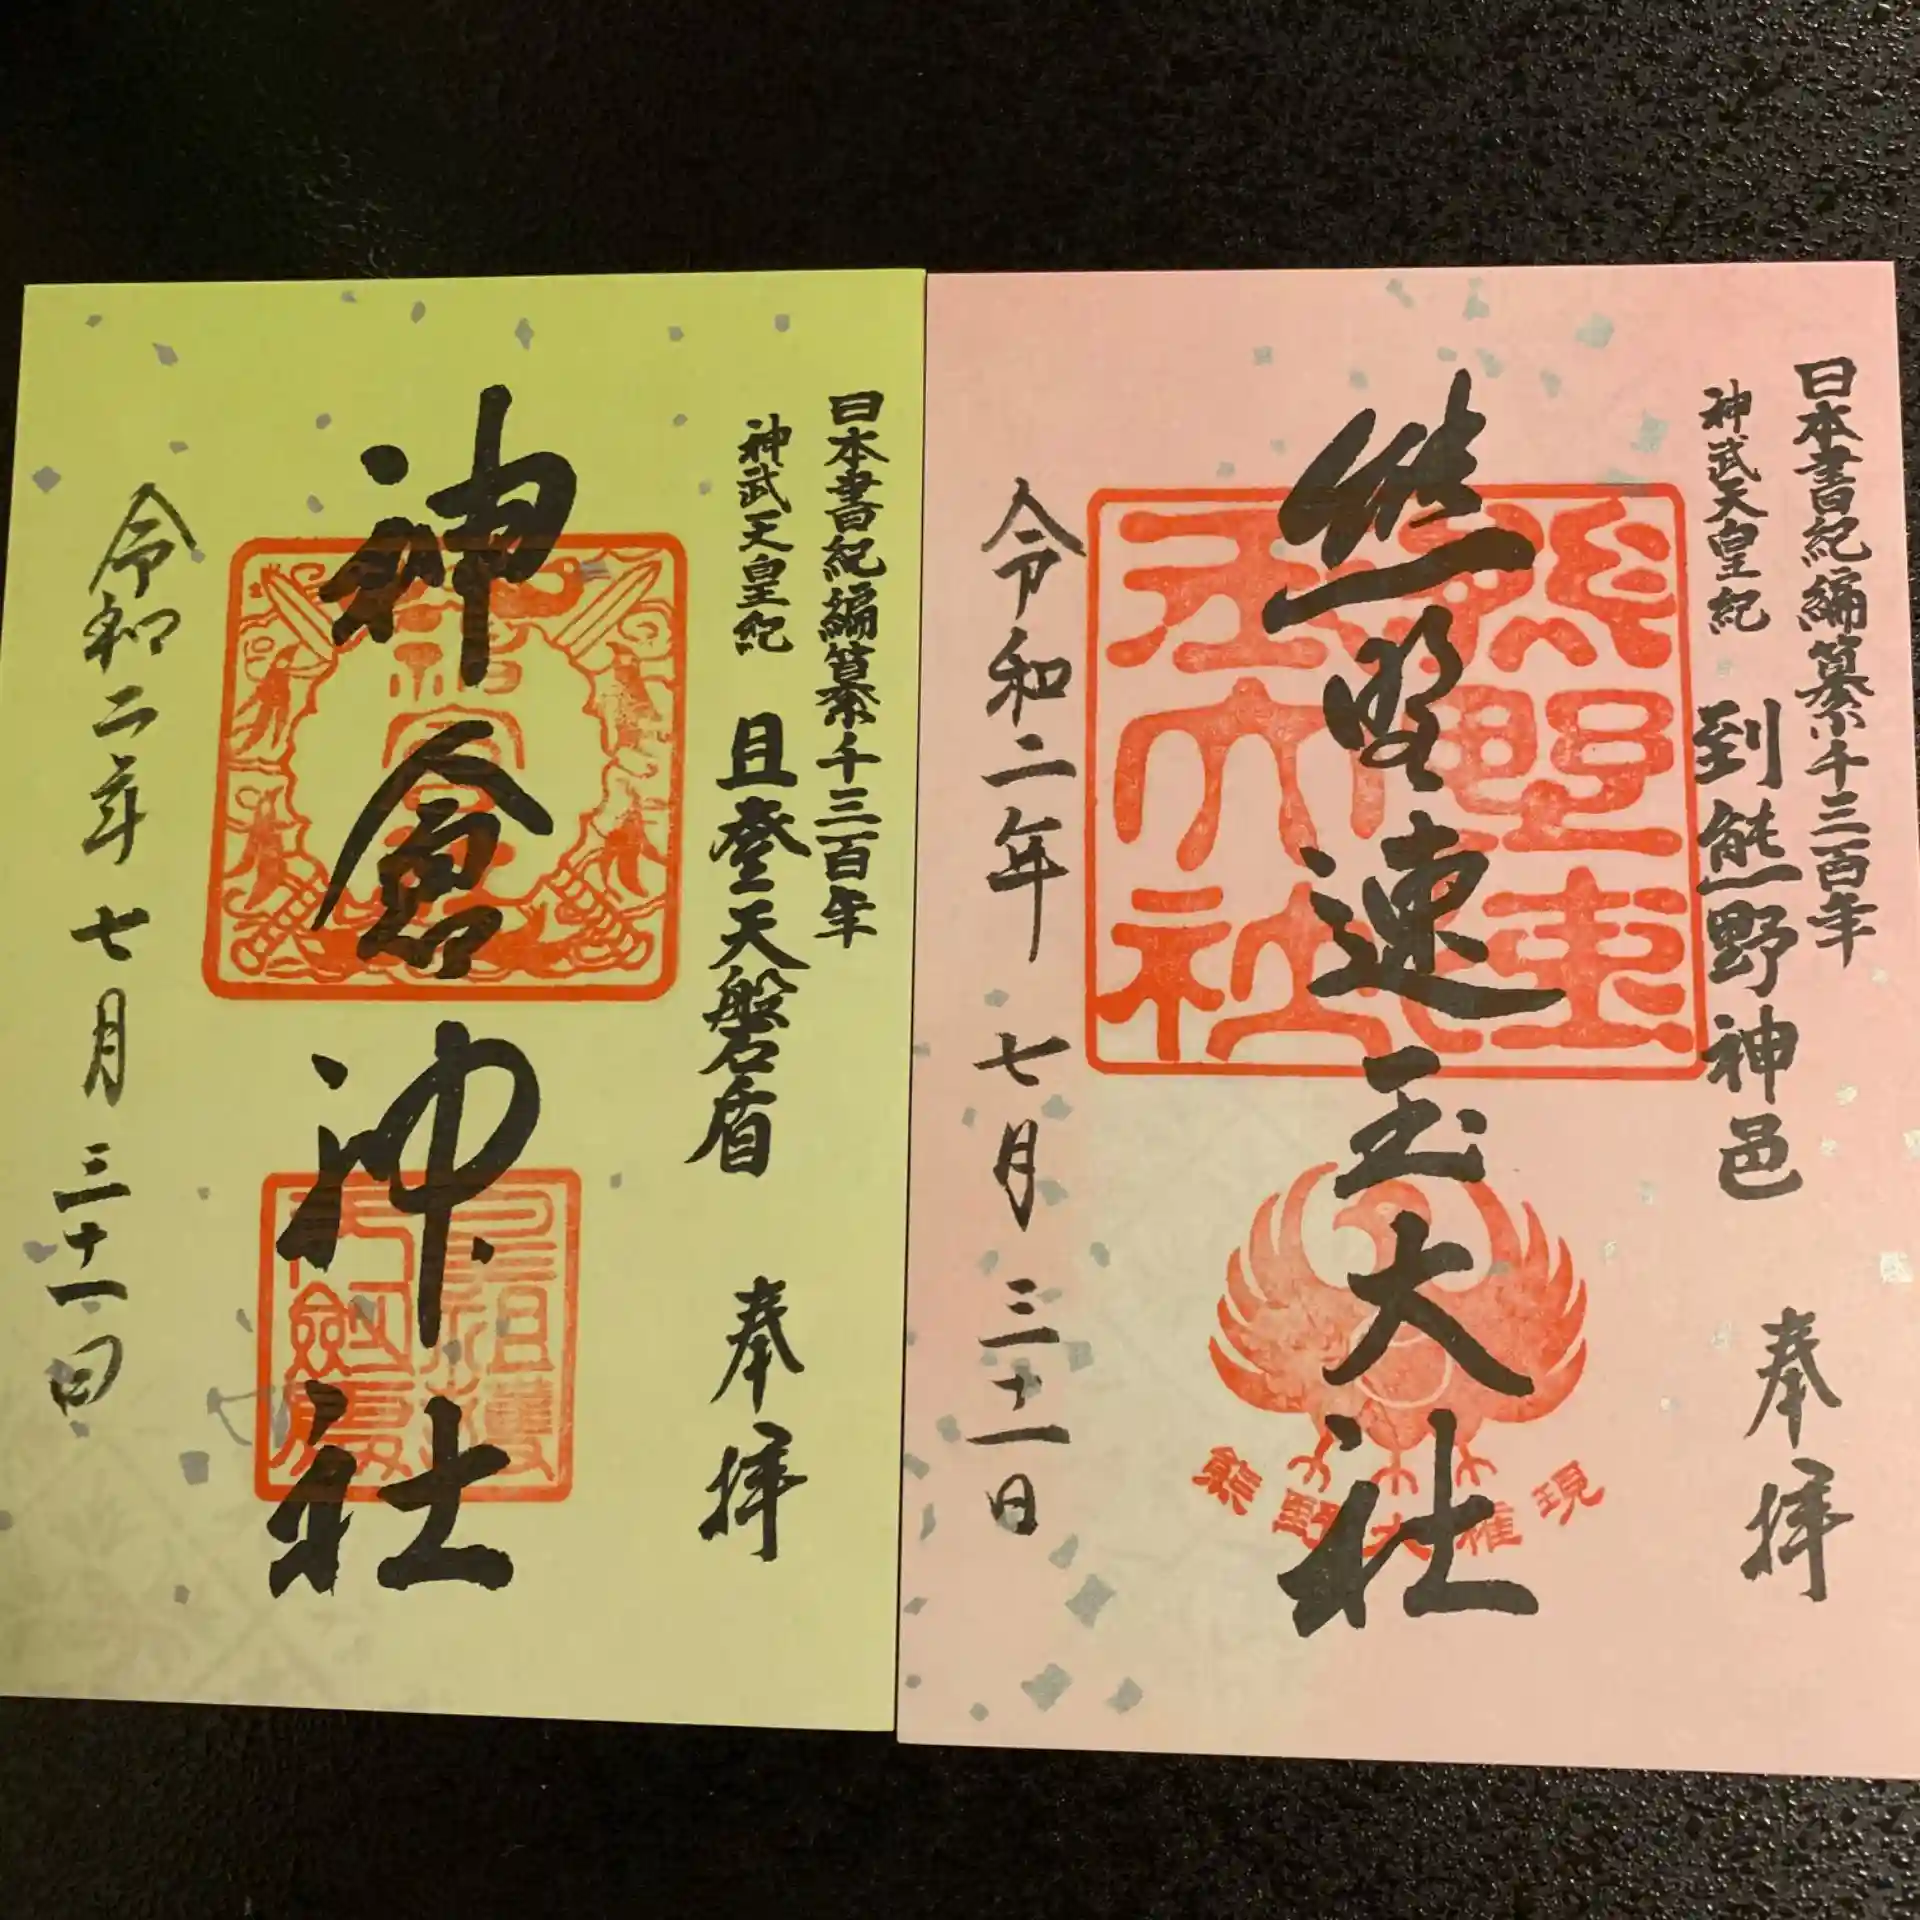 日本書紀編纂千三百年
神武天皇紀 到熊野神邑
奉拝
熊野速玉大社
熊野速玉大社
熊野大権現
令和二年七月三十一日
日本書紀編纂千三百年
神武天皇紀 且登天磐盾
奉拝
神倉神社
令和二年七月三十一日